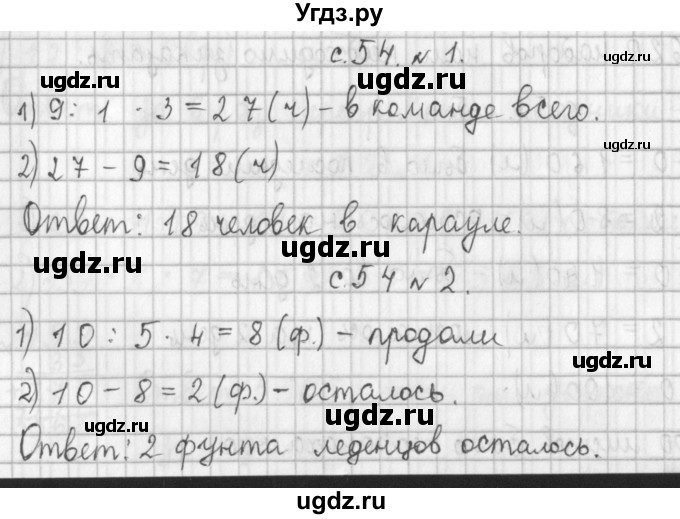 Угдз.ру
с.54. №1.
1) 9 : 1 · 3 = 27 (ч) – в команде всего.
2) 27 – 9 = 18 (ч)
Ответ: 18 человек в карауле.
с.54 №2.
1) 10 : 5 · 4 = 8 (ф.) – продали
2) 10 – 8 = 2 (ф.) – осталось.
Ответ: 2 фунта леденцов осталось.
ugdz.ru
ugdz.ru
ugdz.ru
ugdz.ru
ugdz.ru
ugdz.ru
ugdz.ru
ugdz.ru
ugdz.ru
ugdz.ru
ugdz.ru
ugdz.ru